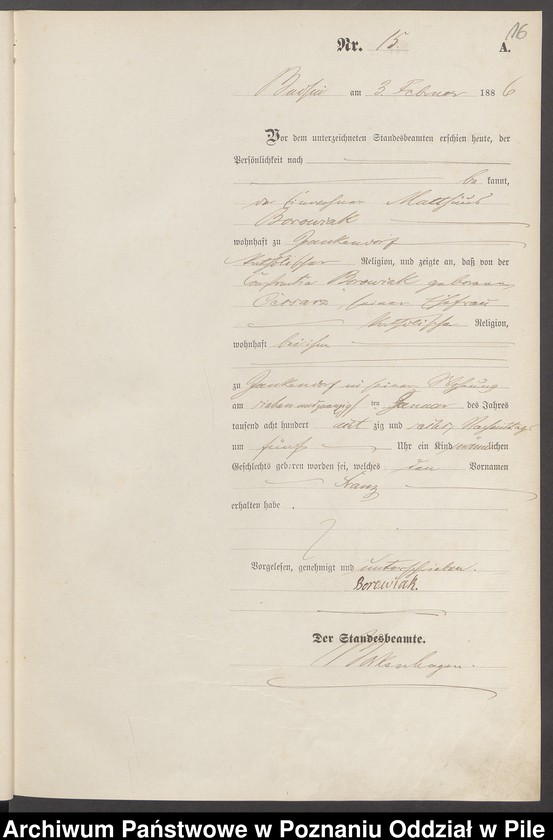 16
Nr. 15. A.
am 3. Februar 1886
Vor dem unterzeichneten Standesbeamten erschien heute, der
Persönlichkeit nach
be kannt,
der Einwohner Matthäus
Borowiak
wohnhaft zu Jankendorf
katholischer Religion, und zeigte an, daß von der
Borowiak geborenen
seiner Ehefrau
katholischer Religion,
wohnhaft bei ihm
zu Jankendorf in seiner Wohnung
am siebenundzwanzigsten Januar des Jahres
tausend acht hundert acht zig und sechs Nachmittags
um fünf Uhr ein Kind männlichen
Geschlechts geboren worden sei, welches den Vornamen
Franz
erhalten habe .
Vorgelesen, genehmigt und unterschrieben.
Borowiak.
Der Standesbeamte.
Archiwum Państwowe w Poznaniu Oddział w Pile